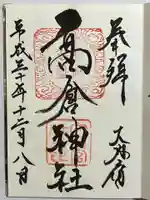 奉拝
高倉神社
平成三十年十二月八日